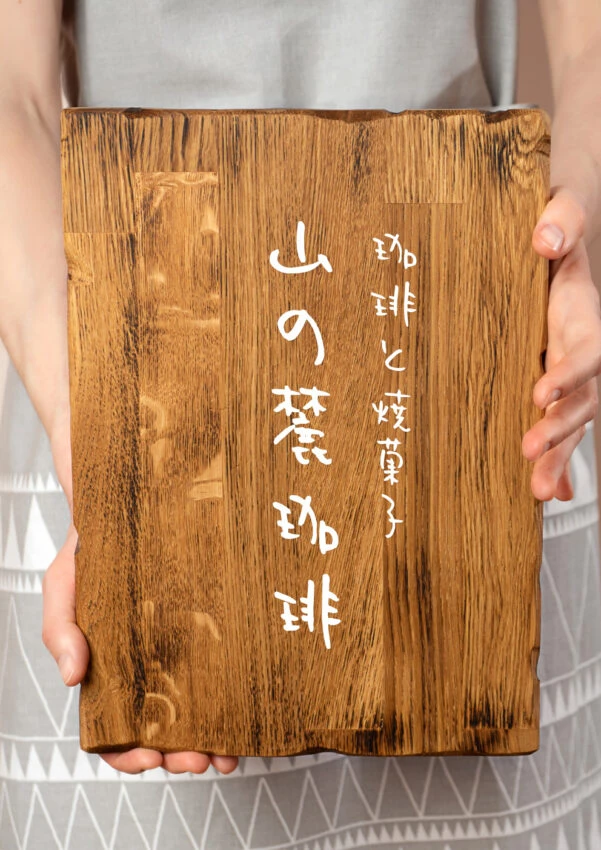 珈琲と焼菓子
山の麓珈琲